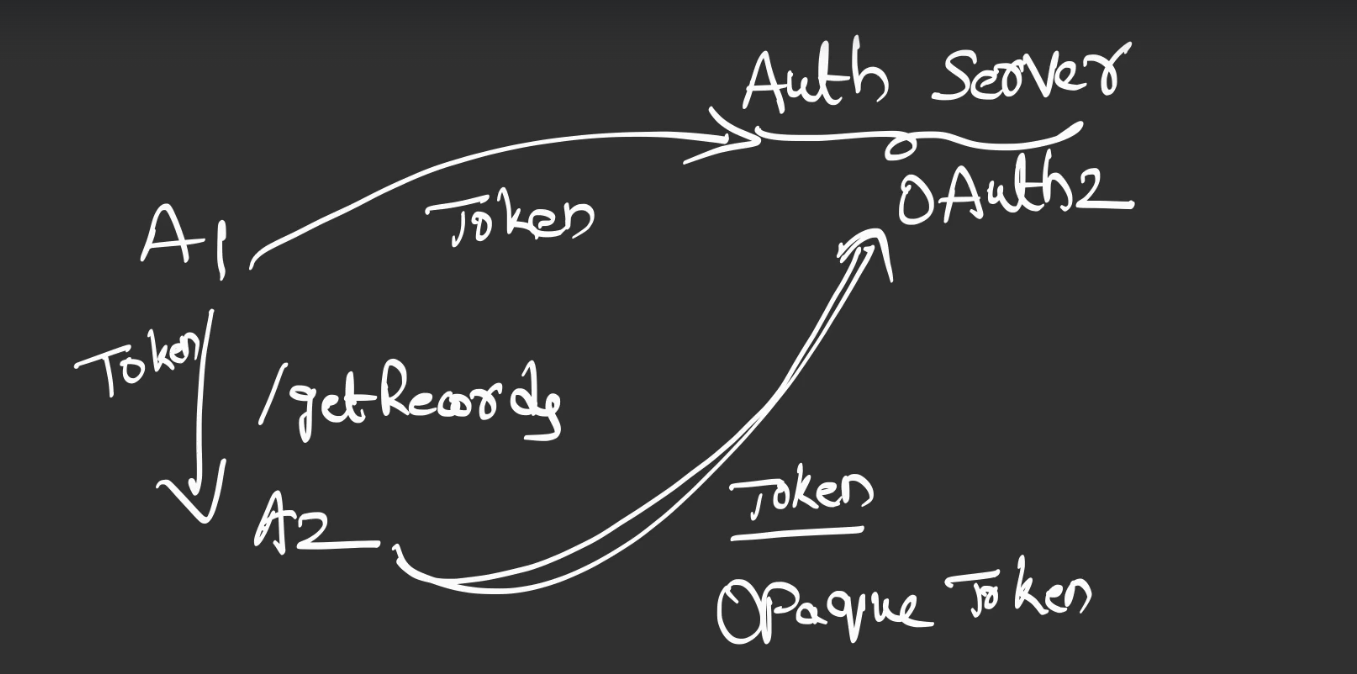 Auth Server
OAuth2
Token
A1
Token
/getRecords
A2
Token
Opaque Token